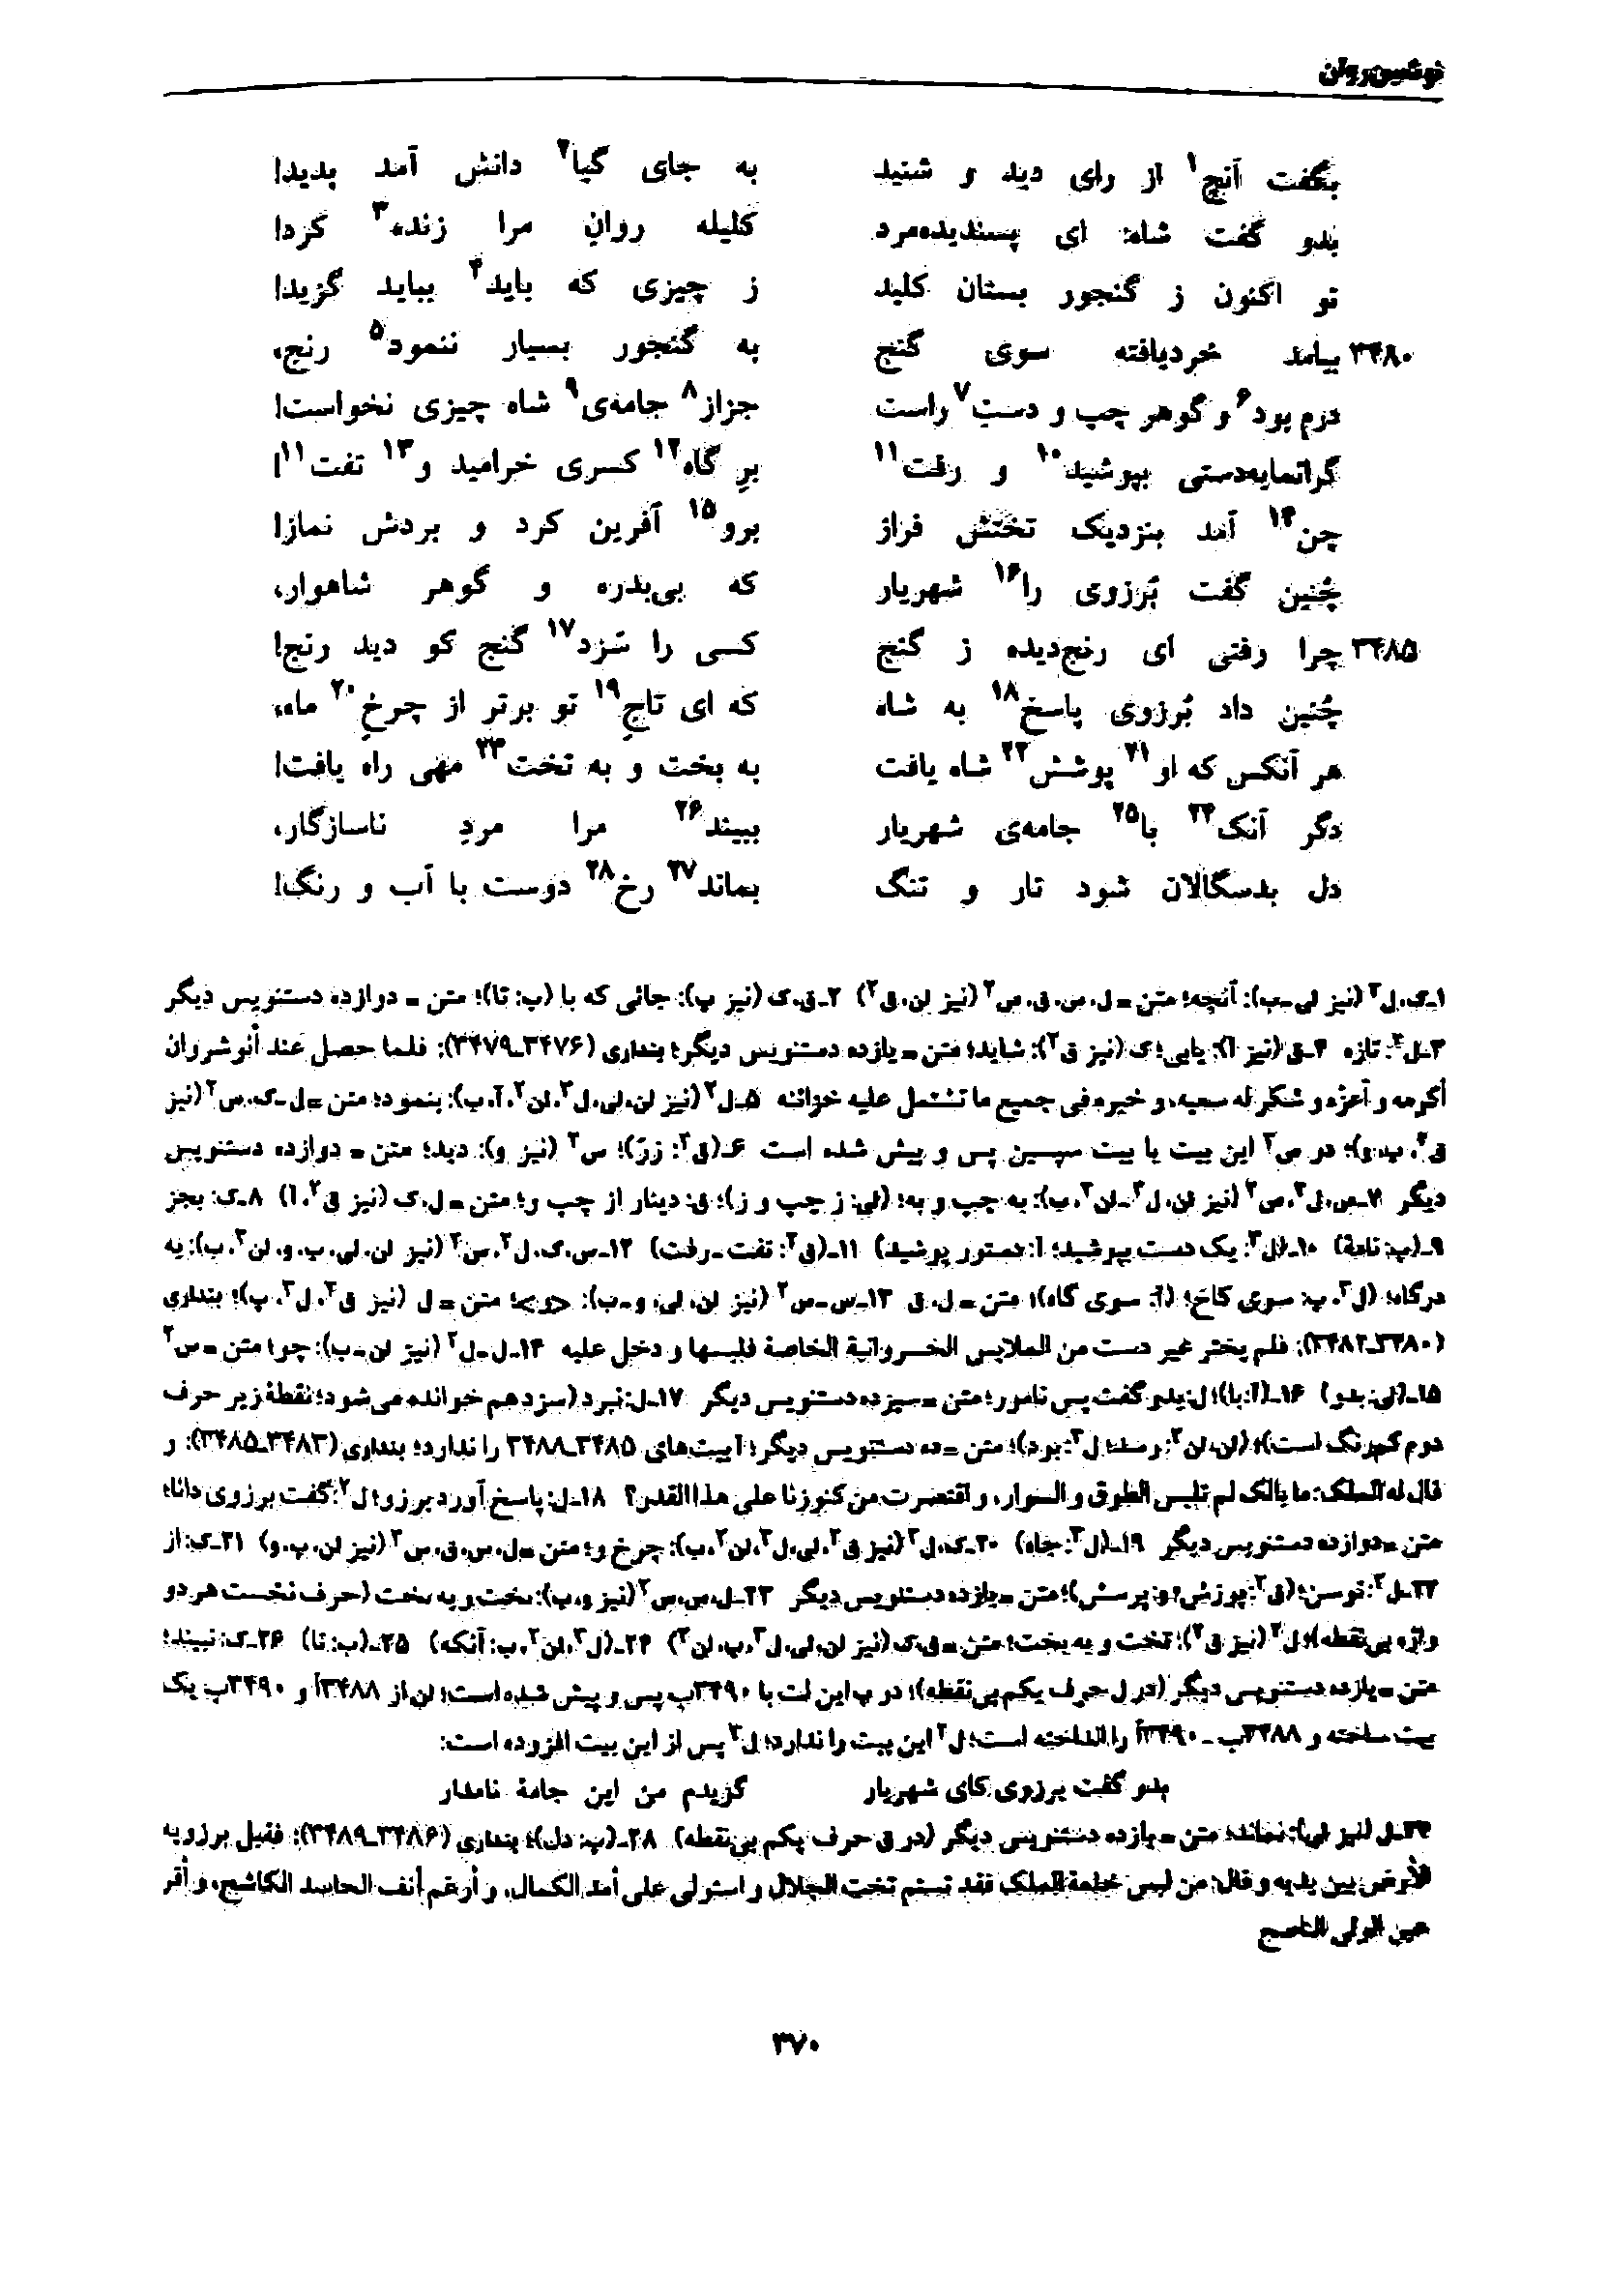 نوشین‌روان
بگفت آنچ۱ از رای دید و شنید به جای گیا۲ دانش آمد پدید!
بدو گفت شاه: ای پسندیده‌مرد کلیله روانِ مرا زنده۳ کرد!
تو اکنون ز گنجور بستان کلید ز چیزی که باید۴ بباید گزید!
۳۴۸۰ بیامد خردیافته سوی گنج به گنجور بسیار ننمود۵ رنج،
درم بود۶ و گوهر چپ و دستِ۷ راست جزاز۸ جامه‌ی۹ شاه چیزی نخواست!
گرانمایه‌دستی بپوشید۱۰ و رفت۱۱ برِ گاه۱۲ کسری خرامید و۱۳ تفت۱۱!
چن۱۴ آمد بنزدیک تختش فراز برو۱۵ آفرین کرد و بردش نماز!
چُنین گفت بُرزوی را۱۶ شهریار که بی‌بدره و گوهر شاهوار،
۳۴۸۵ چرا رفتی ای رنج‌دیده ز گنج کسی را سَزد۱۷ گنج کو دید رنج!
چُنین داد بُرزوی پاسخ۱۸ به شاه که ای تاجِ۱۹ تو برتر از چرخِ۲۰ ماه،
هر آنکس که او۲۱ پوشش۲۲ شاه یافت به بخت و به تخت۲۳ مهی راه یافت!
دگر آنک۲۴ با۲۵ جامه‌ی شهریار ببیند۲۶ مرا مردِ ناسازگار،
دل بدسگالان شود تار و تنگ بماند۲۷ رخ۲۸ دوست با آب و رنگ!
۱ـ ک، ل۲ (نیز لی ـ ب): آنچه؛ متن = ل، س، ق، س۲ (نیز لن، ق۲) ۲ـ ق، ک (نیز پ): جائی که با (ب: تا)؛ متن = دوازده دستنویس دیگر
۳ـ ل۲: تازه ۴ـ ق (نیز آ): یابی؛ ک (نیز ق۲): شاید؛ متن = یازده دستنویس دیگر؛ بنداری (۳۴۷۶ـ۳۴۷۹): فلما حصل عند أنوشروان
أکرمه و أعزه و شکر له سعیه، و خیره فی جمیع ما تشتمل علیه خزائنه ۵ـ ل۲ (نیز لن، لی، ل۳، لن۲، آ، ب): بنمود؛ متن = ل ـ ک، س۲ (نیز
ق۲، پ، و)؛ در س۲ این بیت با بیت سپسین پس و پیش شده است ۶ـ (ق۲: زر)؛ س۲ (نیز و): دید؛ متن = دوازده دستنویس
دیگر ۷ـ س، ل۲، س۲ (نیز لن، ل۳ ـ لن۲، ب): به چپ و به؛ (لی: ز چپ و ز)؛ ق: دینار از چپ و؛ متن = ل، ک (نیز ق۲، آ) ۸ـ ک: بجز
۹ـ (پ: نامهٔ) ۱۰ـ (ل۳: یک دست بپوشید؛ آ: دستور پوشید) ۱۱ـ (ق۲: تفت ـ رفت) ۱۲ـ س، ک، ل۲، س۲ (نیز لن، لی، پ، و، لن۲، ب): به
درگاه؛ (ل۳، پ: سوی کاخ؛ (آ: سوی گاه)؛ متن = ل، ق ۱۳ـ س ـ س۲ (نیز لن، لی، و ـ ب): <و>؛ متن = ل (نیز ق۲، ل۳، پ)؛ بنداری
(۳۴۸۰ـ۳۴۸۲): فلم یختر غیر دست من الملابس الخسروانیة الخاصة فلبسها و دخل علیه ۱۴ـ ل ـ ل۲ (نیز لن ـ ب): چو؛ متن = س۲
۱۵ـ (لی: بدو) ۱۶ـ (آ: با)؛ ل: بدو گفت پس نامور؛ متن = سیزده دستنویس دیگر ۱۷ـ ل: نبرد (سزد هم خوانده می‌شود؛ نقطهٔ زیر حرف
دوم کمرنگ است)؛ (لن، لن۲: رسد؛ ل۳: بود)؛ متن = ده دستنویس دیگر؛ آ بیت‌های ۳۴۸۵ـ۳۴۸۸ را ندارد؛ بنداری (۳۴۸۳ـ۳۴۸۵): و
قال له الملک: ما بالک لم تلبس الطوق و السوار، و اقتصرت من کنوزنا علی هذا القدر؟ ۱۸ـ ل: پاسخ آورد برزو؛ ل۲: گفت برزوی دانا؛
متن = دوازده دستنویس دیگر ۱۹ـ (ل۳: جاه) ۲۰ـ ک، ل۲ (نیز ق۲، لی، ل۳، لن۲، ب): چرخ و؛ متن = ل، س، ق، س۲ (نیز لن، پ، و) ۲۱ـ ک: از
۲۲ـ ل۲: توسن؛ (ق۲: پوزش؛ و: پرسش)؛ متن = یازده دستنویس دیگر ۲۳ـ ل، س، س۲ (نیز و، ب): بخت و به بخت (حرف نخست هر دو
واژه بی‌نقطه)؛ ل۲ (نیز ق۲): تخت و به بخت؛ متن = ق، ک (نیز لن، لی، ل۳، پ، لن۲) ۲۴ـ (ل۳، لن۲، ب: آنکه) ۲۵ـ (ب: تا) ۲۶ـ ک: نبیند؛
متن = یازده دستنویس دیگر (در ل حرف یکم بی‌نقطه)؛ در پ این لت با ۳۴۹۰ب پس و پیش شده است؛ لن از ۳۴۸۸آ و ۳۴۹۰ب یک
بیت ساخته و ۳۴۸۸ب ـ ۳۴۹۰آ را انداخته است؛ ل۲ این بیت را ندارد؛ ل۳ پس از این بیت افزوده است:
بدو گفت برزوی کای شهریار گزیدم من این جامهٔ نامدار
۲۷ـ ل (نیز لی): نماند؛ متن = یازده دستنویس دیگر (در ق حرف یکم بی‌نقطه) ۲۸ـ (پ: دل)؛ بنداری (۳۴۸۶ـ۳۴۸۹): فقبل برزویه
الأرض بین یدیه و قال: من لبس خلعة الملک فقد تسنم تخت الجلال و استولی علی أمد الکمال، و أرغم أنف الحاسد الکاشح، و أقر
عین الولی الناصح
۳۷۰